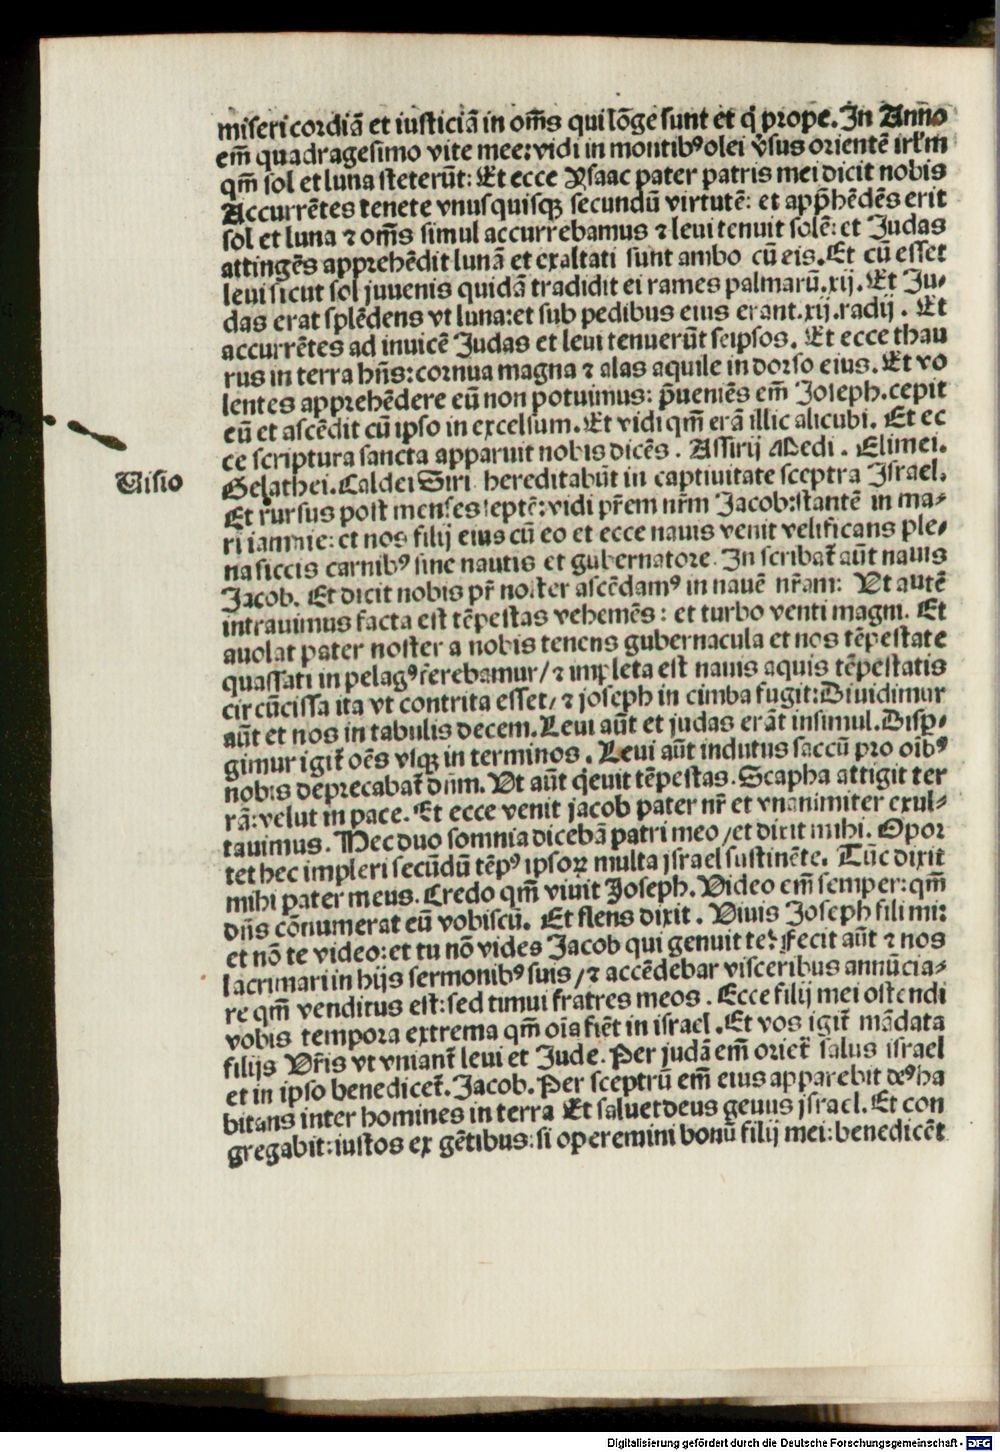 misericordiā et iusticiā in om̄s qui lōge sunt et q̇ prope. In Anno
em̄ quadragesimo vite mee: vidi in montibꝰ olei v̄sus orientē irl'm
qm̄ sol et luna steterūt: Et ecce Ysaac pater patris mei dicit nobis
Accurrētes tenete vnusquisqꝫ secundū virtutē: et app̄hēdēs erit
sol et luna ⁊ om̄s simul accurrebamus ⁊ leui tenuit solē: et Judas
attingēs apprehēdit lunā et exaltati sunt ambo cū eis. Et cū esset
leui sicut sol juuenis quidā tradidit ei rames palmarū. xij. Et Ju-
das erat splēdens vt luna: et sub pedibus eius erant. xij. radij. Et
accurrētes ad inuicē Judas et leui tenuerūt seipsos. Et ecce thau
rus in terra hn̄s: cornua magna ⁊ alas aquile in dorso eius. Et vo
lentes apprehēdere eū non potuimus: p̄ueniēs em̄ Joseph. cepit
eū et ascēdit cū ipso in excelsum. Et vidi qm̄ erā illic alicubi. Et ec
ce scriptura sancta apparuit nobis dicēs. Assirij Medi. Elimei.
Visio
Gelathei. Caldei Siri hereditabūt in captiuitate sceptra Israel.
Et rursus post menses septē: vidi pr̄em nr̄m Jacob: stantē in ma-
ri iamnie: et nos filij eius cū eo et ecce nauis venit velificans ple-
na siccis carnibꝰ sine nautis et gubernatore. In scribat̄ aūt nauis
Jacob. Et dicit nobis pr̄ noster ascēdamꝰ in nauē nr̄am: Vt autē
intrauimus facta est tēpestas vehemēs: et turbo venti magni. Et
auolat pater noster a nobis tenens gubernacula et nos tēpestate
quassati in pelagꝰ ferebamur/ ⁊ impleta est nauis aquis tēpestatis
circūcissa ita vt contrita esset/ ⁊ joseph in cimba fugit: Diuidimur
aūt et nos in tabulis decem. Leui aūt et judas erāt insimul. Disp-
gimur igit̄ oēs vsqꝫ in terminos. Leui aūt indutus saccū pro oibꝰ
nobis deprecabat̄ dūm. Vt aūt q̇euit tēpestas. Scapha attigit ter
rā: velut in pace. Et ecce venit jacob pater nr̄ et vnanimiter exul-
tauimus. Hec duo somnia dicebā patri meo/ et dixit mihi. Opor
tet hec impleri secūdū tēpꝰ ipsoꝝ multa jsrael sustinēte. Tūc dixit
mihi pater meus. Credo qm̄ viuit Joseph. Video em̄ semper: qm̄
dn̄s cōnumerat eū vobiscū. Et flens dixit. Viuis Joseph fili mi:
et nō te video: et tu nō vides Jacob qui genuit te: Fecit aūt ⁊ nos
lacrimari in hijs sermonibꝰ suis/ ⁊ accēdebar visceribus annūcia-
re qm̄ venditus est: sed timui fratres meos. Ecce filij mei ostendi
vobis tempora extrema qm̄ oīa fiēt in israel. Et vos igit̄ mādata
filijs Vr̄is vt vniant̄ leui et Jude. Per judā em̄ oriet̄ salus israel
et in ipso benedicet̄. Jacob. Per sceptrū em̄ eius apparebit deꝰ ha
bitans inter homines in terra Et saluet deus genus jsrael. Et con
gregabit: iustos ex gētibus: si operemini bonū filij mei: benedicēt
Digitalisierung gefördert durch die Deutsche Forschungsgemeinschaft - DFG